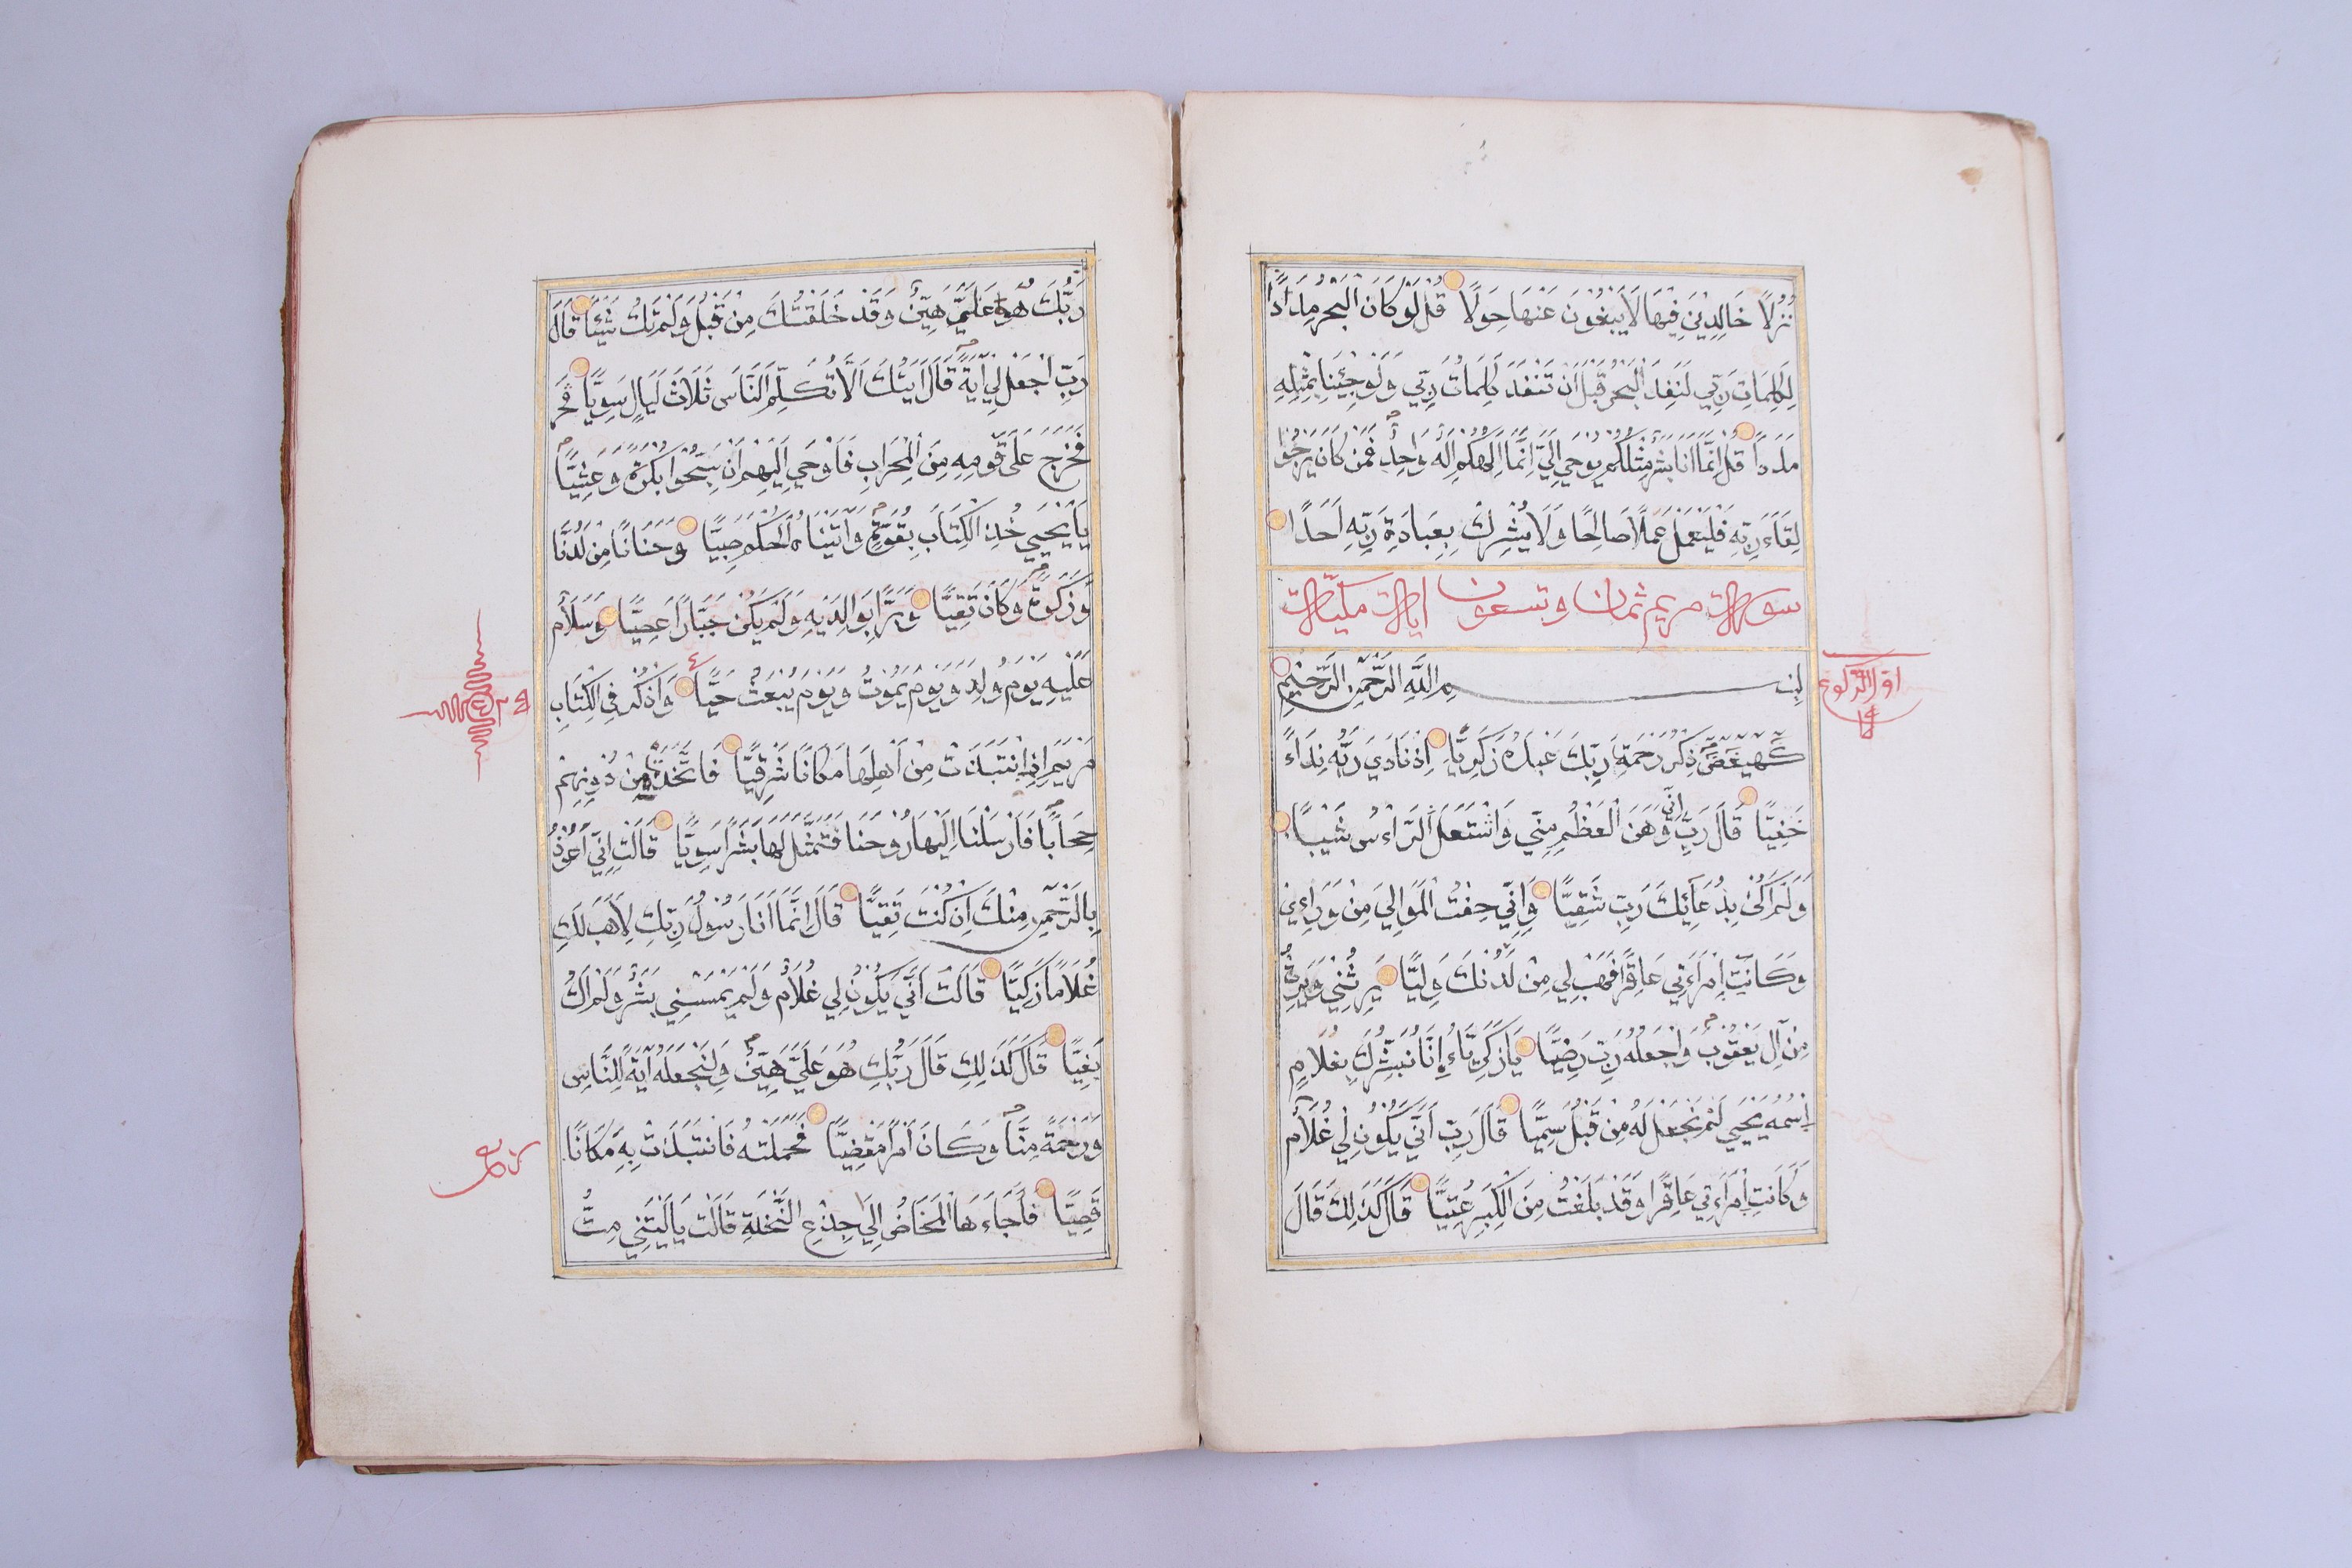 نُزُلًا خَالِدِينَ فِيهَا لَا يَبْغُونَ عَنْهَا حِوَلًا قُلْ لَوْ كَانَ الْبَحْرُ مِدَادًا
لِكَلِمَاتِ رَبِّي لَنَفِدَ الْبَحْرُ قَبْلَ أَنْ تَنْفَدَ كَلِمَاتُ رَبِّي وَلَوْ جِئْنَا بِمِثْلِهِ
مَدَدًا قُلْ إِنَّمَا أَنَا بَشَرٌ مِثْلُكُمْ يُوحَى إِلَيَّ أَنَّمَا إِلَهُكُمْ إِلَهٌ وَاحِدٌ فَمَنْ كَانَ يَرْجُوا
لِقَاءَ رَبِّهِ فَلْيَعْمَلْ عَمَلًا صَالِحًا وَلَا يُشْرِكْ بِعِبَادَةِ رَبِّهِ أَحَدًا
سورة مريم ثمان وتسعون ايات مكيّة
بِسْمِ اللَّهِ الرَّحْمَنِ الرَّحِيمِ
اول الركوع
كهيعص ذِكْرُ رَحْمَةِ رَبِّكَ عَبْدَهُ زَكَرِيَّاءَ إِذْ نَادَى رَبَّهُ نِدَاءً
خَفِيًّا قَالَ رَبِّ إِنِّي وَهَنَ الْعَظْمُ مِنِّي وَاشْتَعَلَ الرَّاءْسُ شَيْبًا
وَلَمْ أَكُنْ بِدُعَائِكَ رَبِّ شَقِيًّا وَإِنِّي خِفْتُ الْمَوَالِيَ مِنْ وَرَاءِي
وَكَانَتِ امْرَاءَتِي عَاقِرًا فَهَبْ لِي مِنْ لَدُنْكَ وَلِيًّا يَرِثُنِي وَيَرِثُ
مِنْ آلِ يَعْقُوبَ وَاجْعَلْهُ رَبِّ رَضِيًّا يَا زَكَرِيَّاءُ إِنَّا نُبَشِّرُكَ بِغُلَامٍ
اسْمُهُ يَحْيَى لَمْ نَجْعَلْ لَهُ مِنْ قَبْلُ سَمِيًّا قَالَ رَبِّ أَنَّى يَكُونُ لِي غُلَامٌ
وَكَانَتِ امْرَاءَتِي عَاقِرًا وَقَدْ بَلَغْتُ مِنَ الْكِبَرِ عُتِيًّا قَالَ كَذَلِكَ قَالَ
رَبُّكَ هُوَ عَلَيَّ هَيِّنٌ وَقَدْ خَلَقْتُكَ مِنْ قَبْلُ وَلَمْ تَكُ شَيْئًا قَالَ
رَبِّ اجْعَلْ لِي آيَةً قَالَ آيَتُكَ أَلَّا تُكَلِّمَ النَّاسَ ثَلَاثَ لَيَالٍ سَوِيًّا فخر
فَخَرَجَ عَلَى قَوْمِهِ مِنَ الْمِحْرَابِ فَأَوْحَى إِلَيْهِمْ أَنْ سَبِّحُوا بُكْرَةً وَعَشِيًّا
يَا يَحْيَى خُذِ الْكِتَابَ بِقُوَّةٍ وَآتَيْنَاهُ الْحُكْمَ صَبِيًّا وَحَنَانًا مِنْ لَدُنَّا
وَزَكَوةً وَكَانَ تَقِيًّا وَبَرًّا بِوَالِدَيْهِ وَلَمْ يَكُنْ جَبَّارًا عَصِيًّا وَسَلَامٌ
ع
عَلَيْهِ يَوْمَ وُلِدَ وَيَوْمَ يَمُوتُ وَيَوْمَ يُبْعَثُ حَيًّا وَاذْكُرْ فِي الْكِتَابِ
مَرْيَمَ إِذِ انْتَبَذَتْ مِنْ أَهْلِهَا مَكَانًا شَرْقِيًّا فَاتَّخَذَتْ مِنْ دُونِهِمْ
حِجَابًا فَأَرْسَلْنَا إِلَيْهَا رُوحَنَا فَتَمَثَّلَ لَهَا بَشَرًا سَوِيًّا قَالَتْ إِنِّي أَعُوذُ
بِالرَّحْمَنِ مِنْكَ إِنْ كُنْتَ تَقِيًّا قَالَ إِنَّمَا أَنَا رَسُولُ رَبِّكِ لِأَهَبَ لَكِ
غُلَامًا زَكِيًّا قَالَتْ أَنَّى يَكُونُ لِي غُلَامٌ وَلَمْ يَمْسَسْنِي بَشَرٌ وَلَمْ أَكُ
بَغِيًّا قَالَ كَذَلِكِ قَالَ رَبُّكِ هُوَ عَلَيَّ هَيِّنٌ وَلِنَجْعَلَهُ آيَةً لِلنَّاسِ
وَرَحْمَةً مِنَّا وَكَانَ أَمْرًا مَقْضِيًّا فَحَمَلَتْهُ فَانْتَبَذَتْ بِهِ مَكَانًا
قَصِيًّا فَأَجَاءَهَا الْمَخَاضُ إِلَى جِذْعِ النَّخْلَةِ قَالَتْ يَا لَيْتَنِي مِتُّ